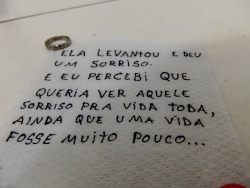 ELA LEVANTOU E DEU
UM SORRISO.
E EU PERCEBI QUE
QUERIA VER AQUELE
SORRISO PRA VIDA TODA,
AINDA QUE UMA VIDA
FOSSE MUITO POUCO...